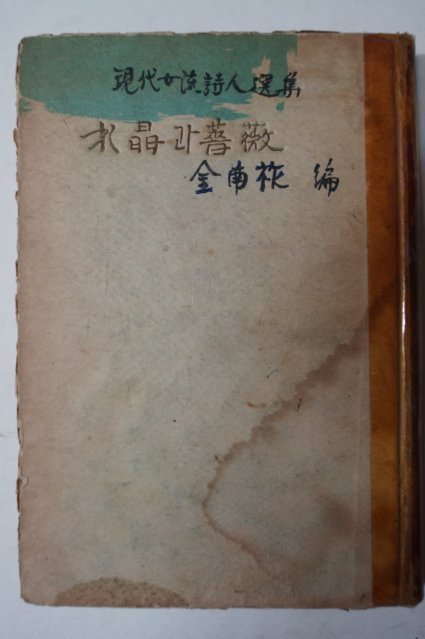 現代女流詩人選集
水晶과薔薇
金南祚 編